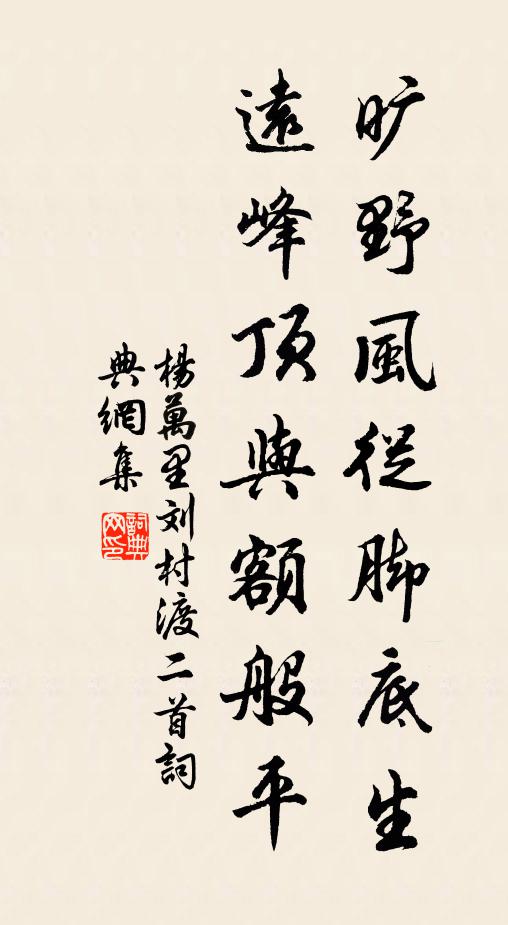 旷野風從脚底生
遠峰頂與額般平
楊萬里刘村渡二首詞
典網集
詞典
网印